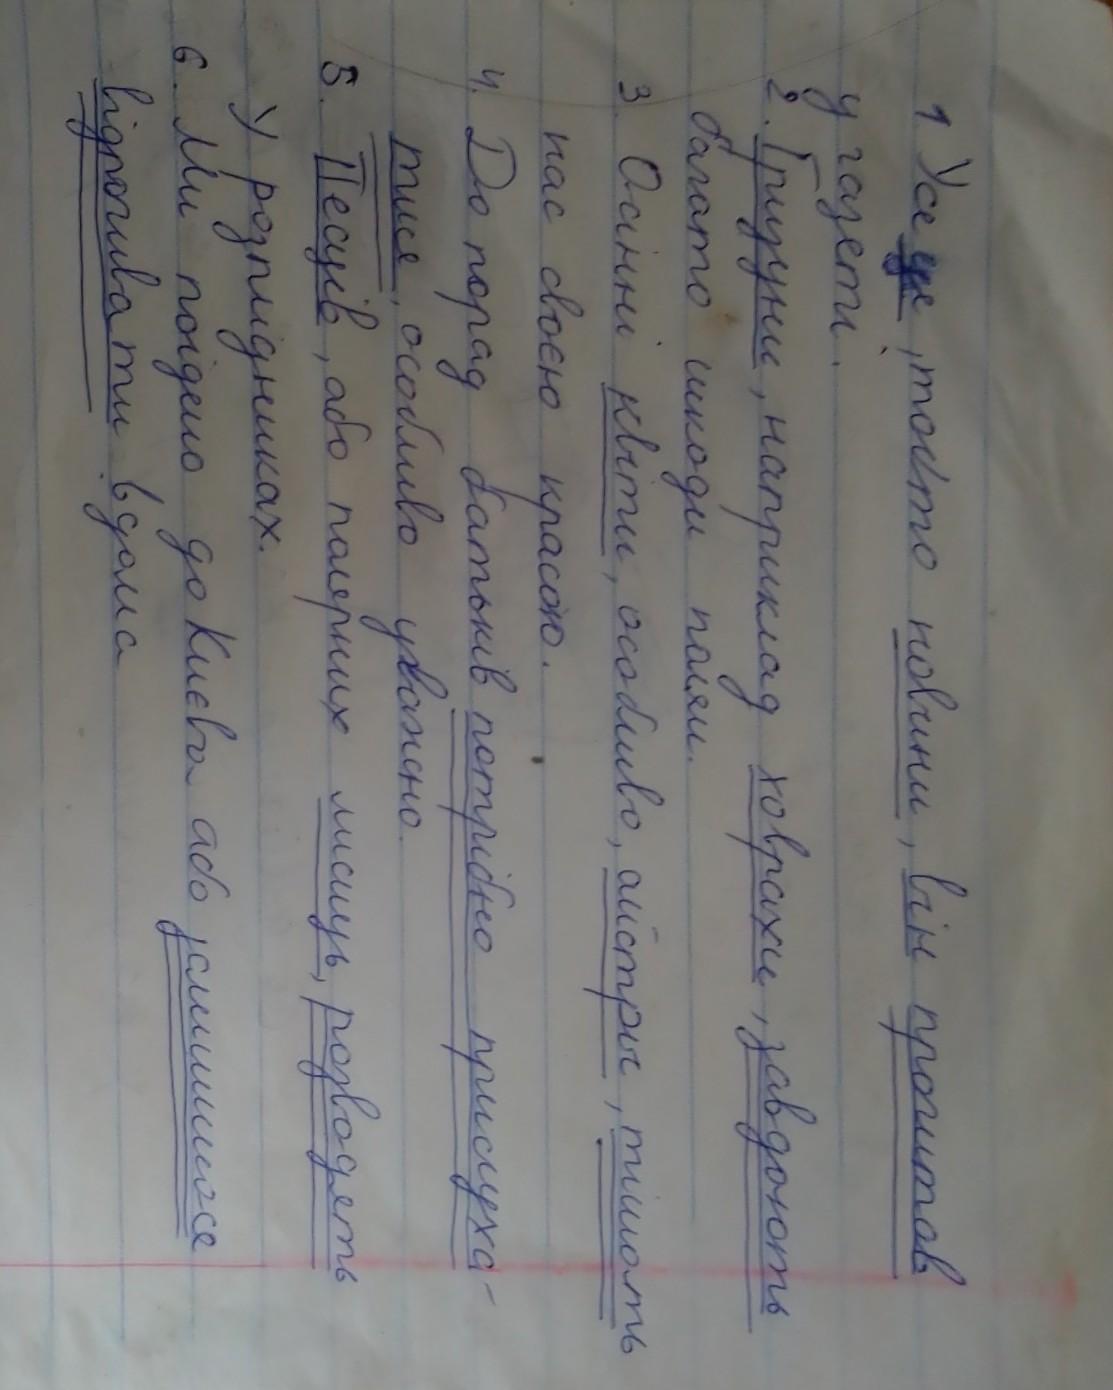 1. Усе це, тобто новини, він прочитав
у газеті.
2. Гризуни, наприклад ховрахи, завдають
багато шкоди полям.
3. Осінні квіти, особливо, айстри, тішать
нас своєю красою.
4. До порад батьків потрібно прислуха-
тися, особливо уважно.
5. Песців, або полярних лисиць, розводять
У розплідниках.
6. Ми поїдемо до Києва або залишимося
відпочивати вдома